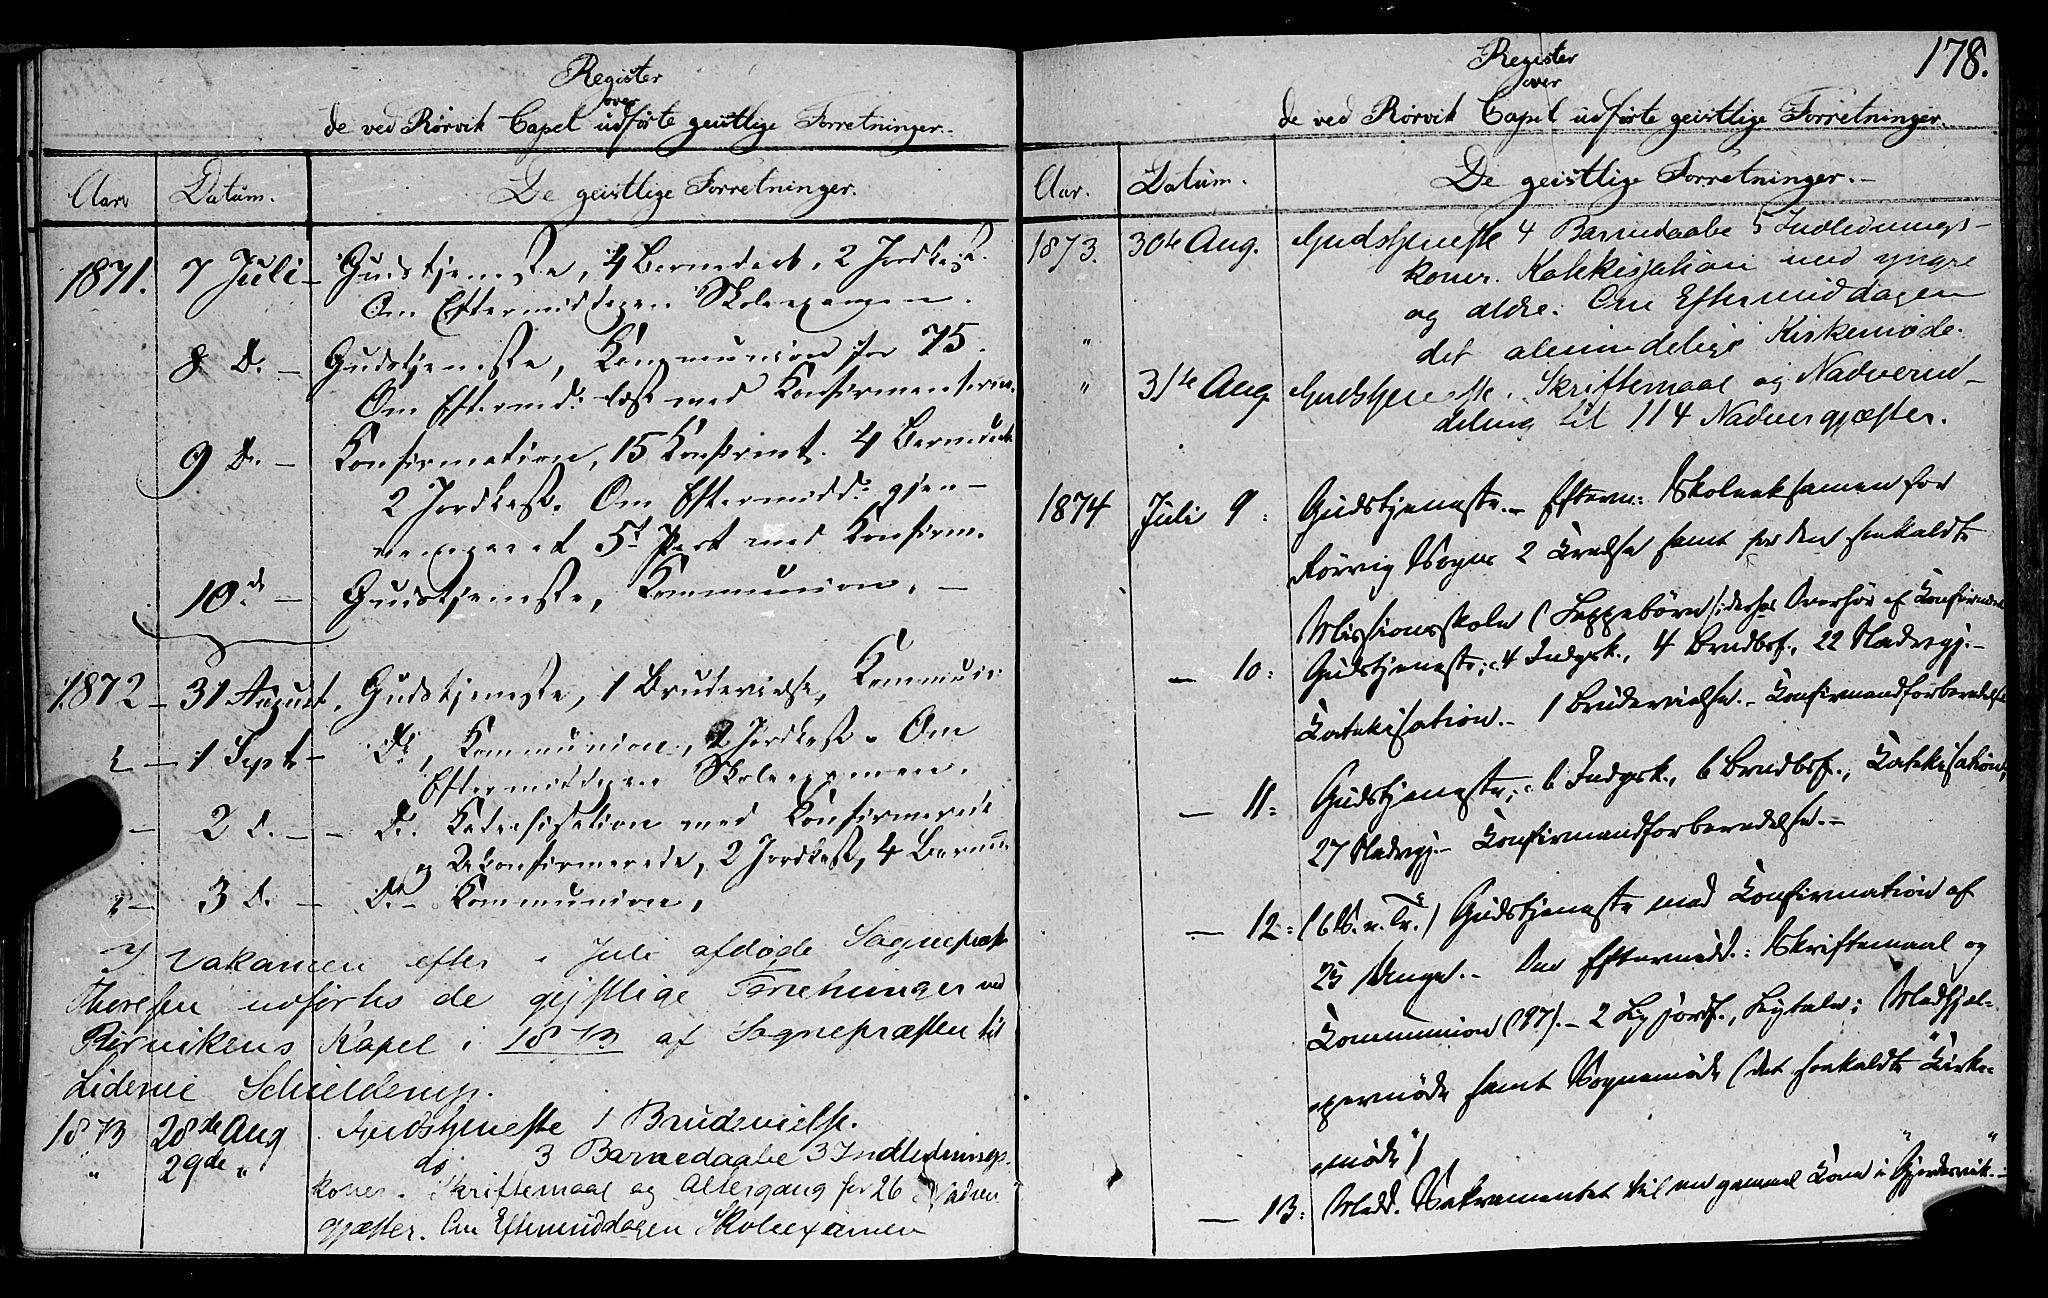 Register
over
de ved Rørvik Capel udførte geistlige Forretninger.
Aar Datum. De geistlige Forretninger.
1871. 7 Juli – Gudstjeneste, 4 Barnedaab, 2 Jordkast.
Om Eftermiddagen Skoleexamen.
8 D. – Gudstjeneste, Kommunion for 75.
Om Eftermd: læst med Konfirmanterne.
9 D. – Konfirmation, 15 Konfirmt. 4 Barnedaab
2 Jordkast. Om Eftermidd: gjen-
5t Part med Konfirm.
10 d. – Gudstjeneste, Kommunion. –
1872 – 31 August. Gudstjeneste, 1 Brudevielse, Kommuni
– 1 Sept – Do, Kommunion, 2 Jordkast. Om
Eftermiddagen Skoleexamen.
– 2 D. – Do. Katechisation med Konfirmerede
og Ukonfirmerede, 2 Jordkast, 4 Barned
– 3 D. – Do – Kommunion,
I Vakancen efter i Juli afdøde Sognepræst
Thoresen udførtes de gejstlige Forretninger ved
Rørvikens Kapel i 1873 af Sognepræsten til
Schielderup.
1873 28de Aug Gudstjeneste 1 Brudevielse.
" 29de " do 3 Barnedaabe 3 Indlednings
koner. Skriftemaal og Altergang for 26 Nadver
gjæster. Om Eftermiddagen Skoleexamen
178.
Register
over
de ved Rørvik Capel udførte geistlige Forretninger.
Aar. Datum. De geistlige Forretninger. –
1873. 30te Aug. Gudstjeneste 4 Barnedaabe 5 Indlednings-
koner. Katekisation med yngre
og ældre. Om Eftermiddagen
" det almindelige Kirkemøde.
" 31te Aug Gudstjeneste. Skriftemaal og Nadverud-
deling til 114 Nadvergjæster.
1874 Juli 9: Gudstjeneste. – Efterm: Skoleeksamen for
Rørvig Sogns 2 Kredse samt for den saakaldte
Missionsskole (Lappebørn) Overhør af Konfirmander
– 10: Gudstjeneste; 4 Indgsk., 4 Brndbsf., 22 Nadvgj. –
Katekisation. – 1 Brudevielse. – Confirmandforberedelse
– 11: Gudstjeneste; 6 Indgsk., 6 Brndbsf., Katekisation,
27 Nadvgj. – Confirmandforberedelse. –
– 12: (6 S. e. Tr.) Gudstjeneste med Confirmation af
25 Unge. – Om Eftermidd.: Skriftemaal og
Communion (97). – 2 Ligjordf., Ligtale; Medhjæl-
permøde samt Sognemøde (det saakaldte "Kirke-
møde")
– 13: Medd. Sakramentet til en gammel Kone i "Gjerdesvik". –